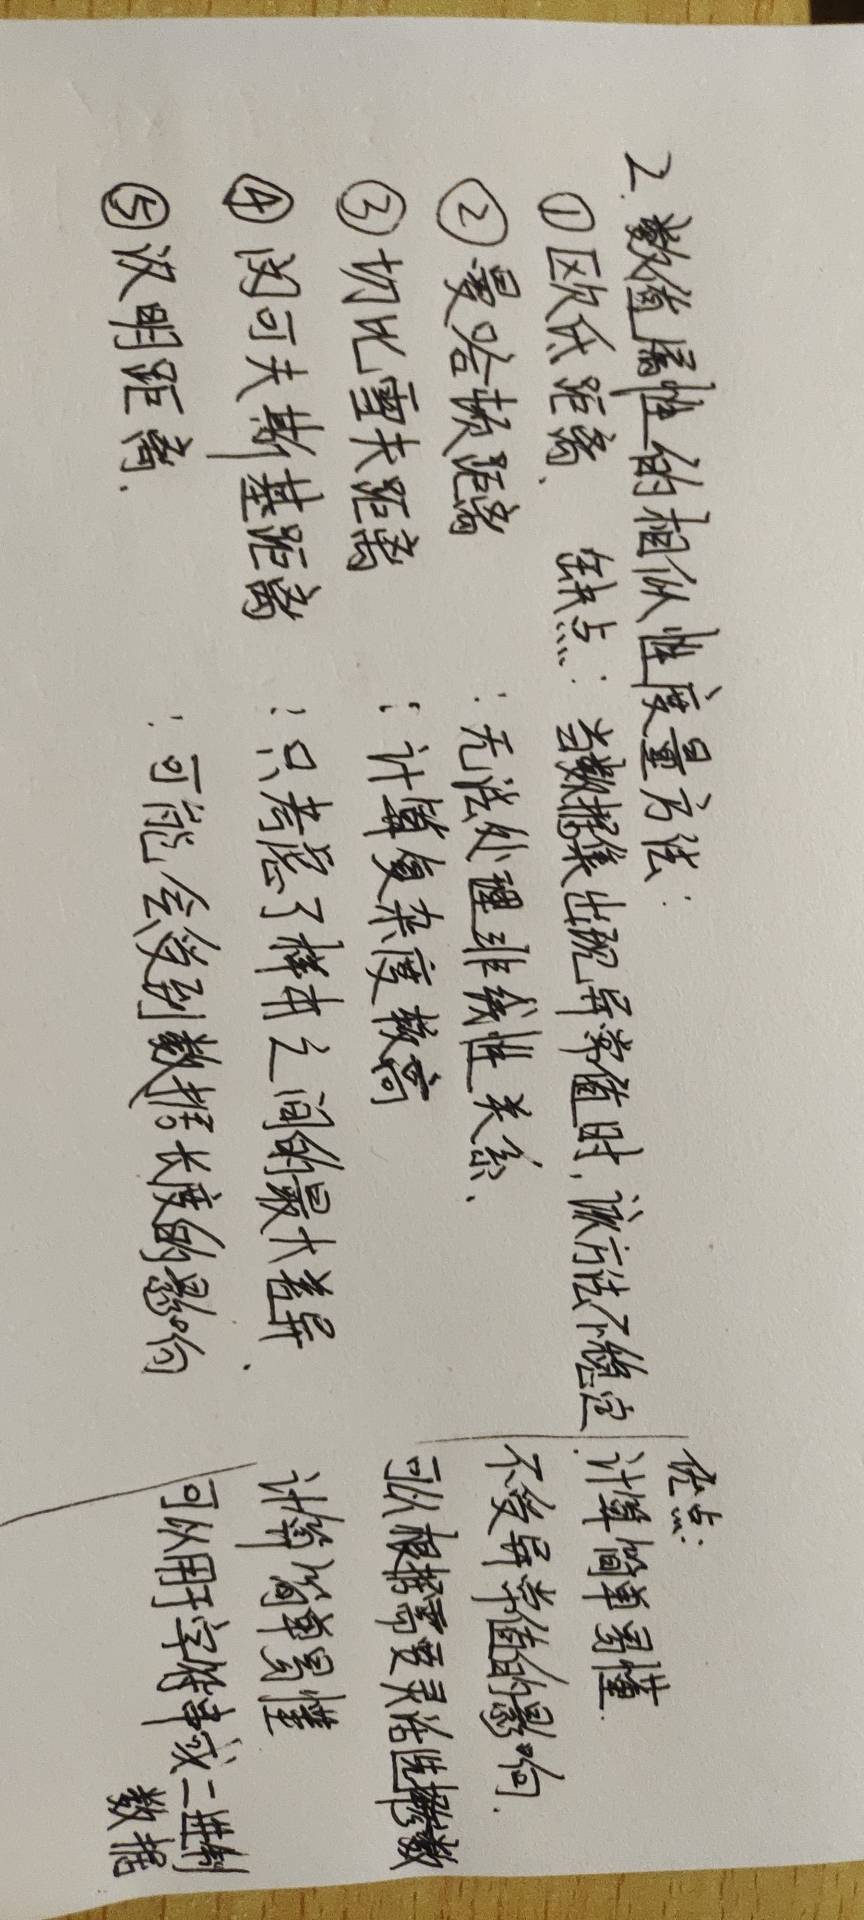 2. 数值属性的相似性度量方法:
优点:
①欧氏距离、 缺点: 当数据集出现异常值时,该方法不稳定. 计算简单易懂.
②曼哈顿距离 : 无法处理非线性关系、 不受异常值的影响.
③切比雪夫距离 : 计算复杂度较高 可以根据需要灵活选择参数
④闵可夫斯基距离 : 只考虑了样本之间的最大差异. 计算简单易懂
⑤汉明距离. : 可能会受到数据长度的影响 可以用于字符串或二进制
数据